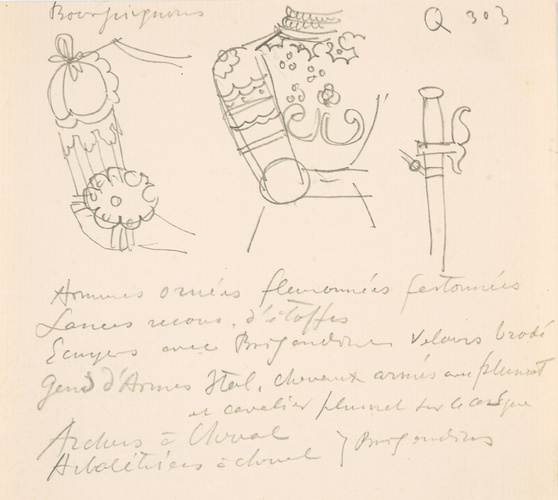 Bourguignons
Q 303
Armures ornées fleuronnées festonnées
Lances recouv. d'étoffes
Ecuyers avec Brigandines Velours brodé
Gens d'Armes Ital. chevaux armés au plumet
et cavalier plumet sur le casque
Archers à Cheval
Arbalétriers à cheval } Brigandines